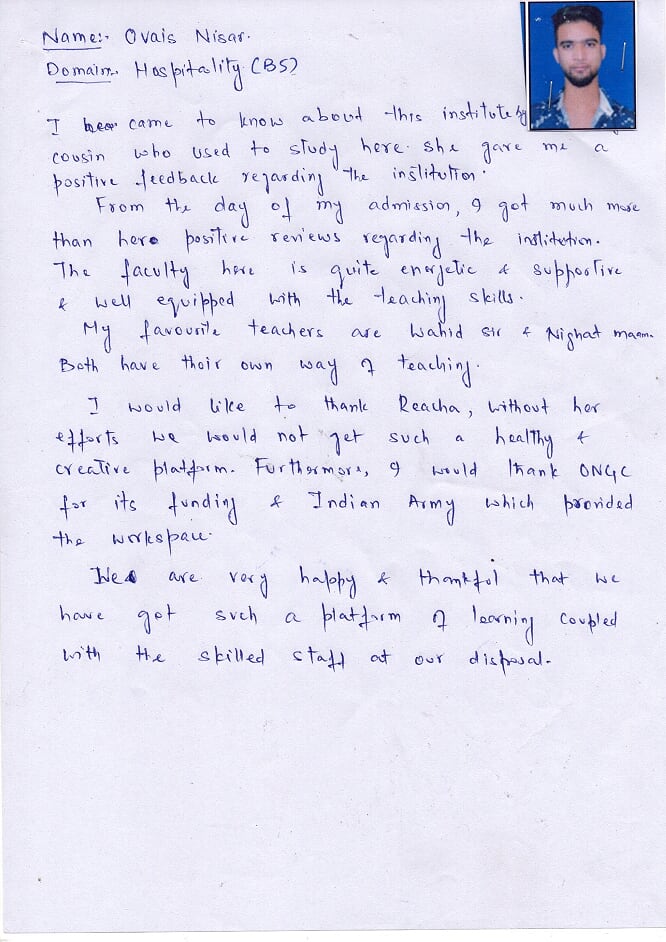 Name:- Ovais Nisar.
Domain:- Hospitality (BS)
I came to know about this institute by
cousin who used to study here. she gave me a
positive feedback regarding the institution.
From the day of my admission, I got much more
than here positive reviews regarding the institution.
The faculty here is quite energetic & supportive
& well equipped with the teaching skills.
My favourite teachers are Wahid Sir & Nighat maam.
Both have their own way of teaching.
I would like to thank Reacha, without her
efforts we would not get such a healthy &
creative platform. Furthermore, I would thank ONGC
for its funding & Indian Army which provided
the workspace.
We are very happy & thankful that we
have got such a platform of learning coupled
with the skilled staff at our disposal.